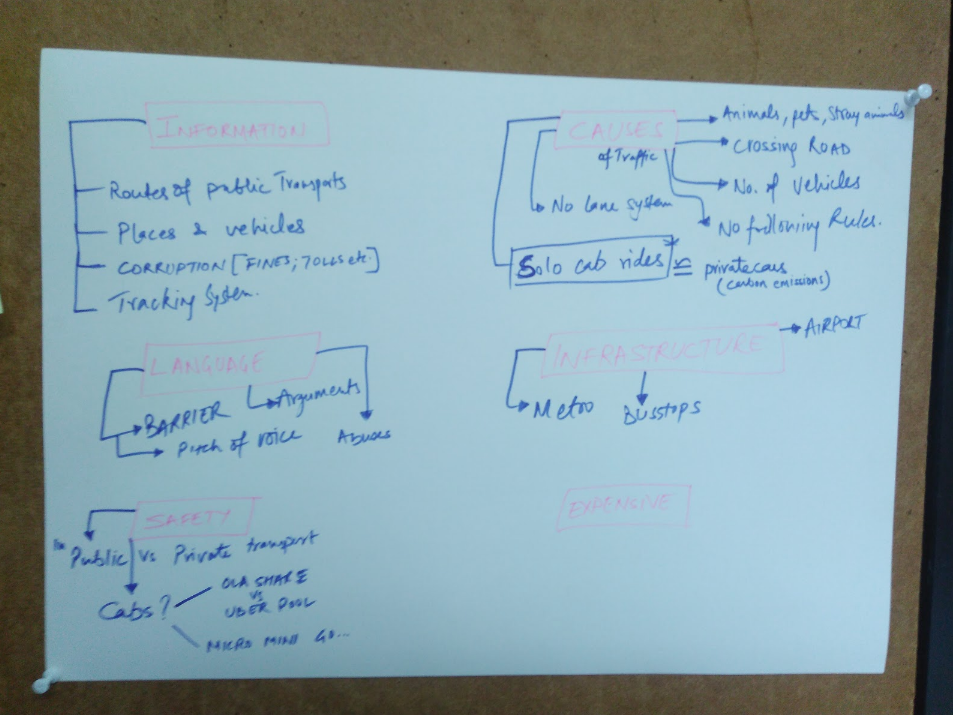 INFORMATION
Routes of public Transports
Places & vehicles
CORRUPTION [FINES; TOLLS etc.]
Tracking System.
CAUSES
of Traffic
Animals, pets, Stray animals
CROSSING ROAD
No. of Vehicles
No following Rules.
No Lane system
Solo cab rides* ≃ private cars
(carbon emissions)
LANGUAGE
BARRIER
Arguments
Pitch of voice
Abuses
INFRASTRUCTURE
AIRPORT
Metro
BUSSTOPS
SAFETY
Public vs Private transport
Cabs?
OLA SHARE
vs
UBER POOL
MICRO MINI GO...
EXPENSIVE